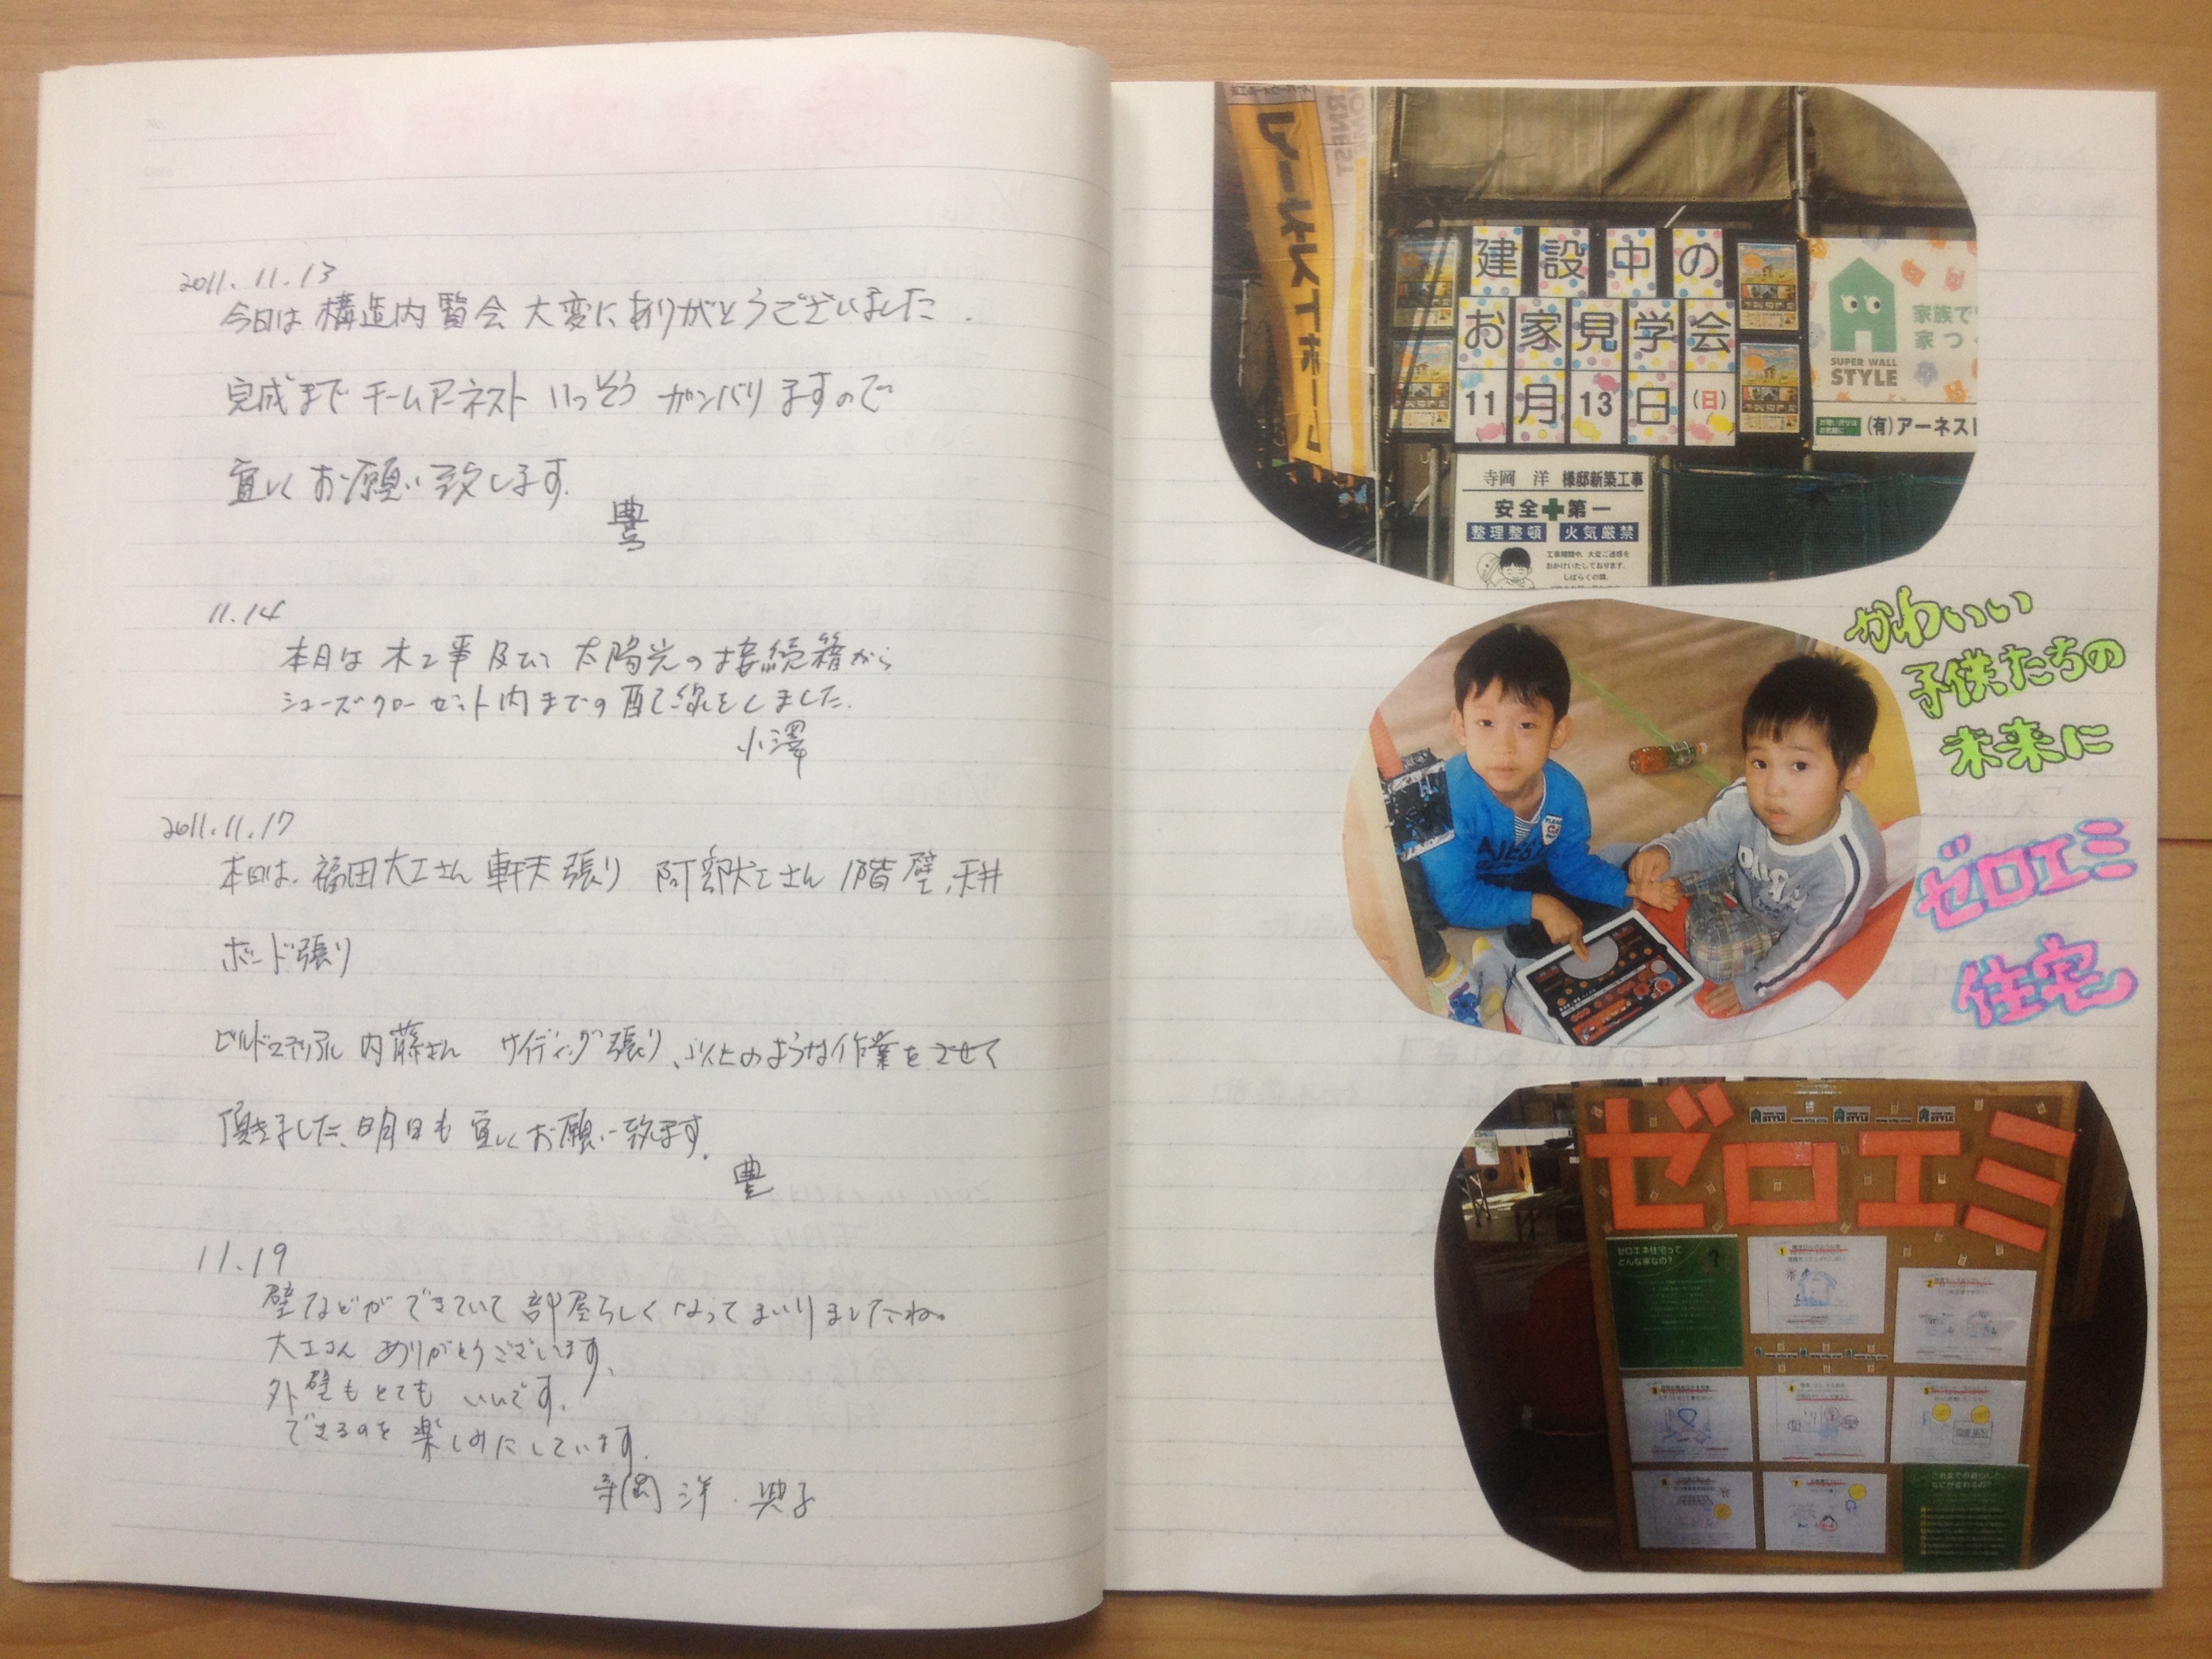 2011.11.13
今日は 構造内覧会 大変にありがとうございました.
完成まで チームアーネスト いっそう ガンバりますので
宜しくお願い致します.
豊
11.14
本日は 木工事 及び 太陽光の接続箱から
シューズクローゼット内までの配線をしました.
小澤
2011.11.17
本日は、福田大工さん 軒天張り 阿部大工さん 1階 壁、天井
ボード張り
ビルドマテリアル 内藤さん サイディング張り、以上のような作業をさせて
頂きました、明日も 宜しくお願い致します.
豊
11.19
壁などができていて 部屋らしくなってまいりましたね。
大工さん ありがとうございます.
外壁もとても いいです.
できるのを 楽しみにしています.
寺岡 洋・典子
アーネストホーム
建設中の
お家見学会
11月13日(日)
家族で
家つ
SUPER WALL
STYLE
(有)アーネスト
寺岡 洋 様邸新築工事
安全第一
整理整頓 火気厳禁
工事期間中、大変ご迷惑を
おかけいたしております。
しばらくの間、
かわいい
子供たちの
未来に
ゼロエミ
住宅
ゼロエミ
ゼロエネ住宅って
どんな家なの?
1
2
3
4
5
6
7
これまでの暮らしと、
なにが変わるの?